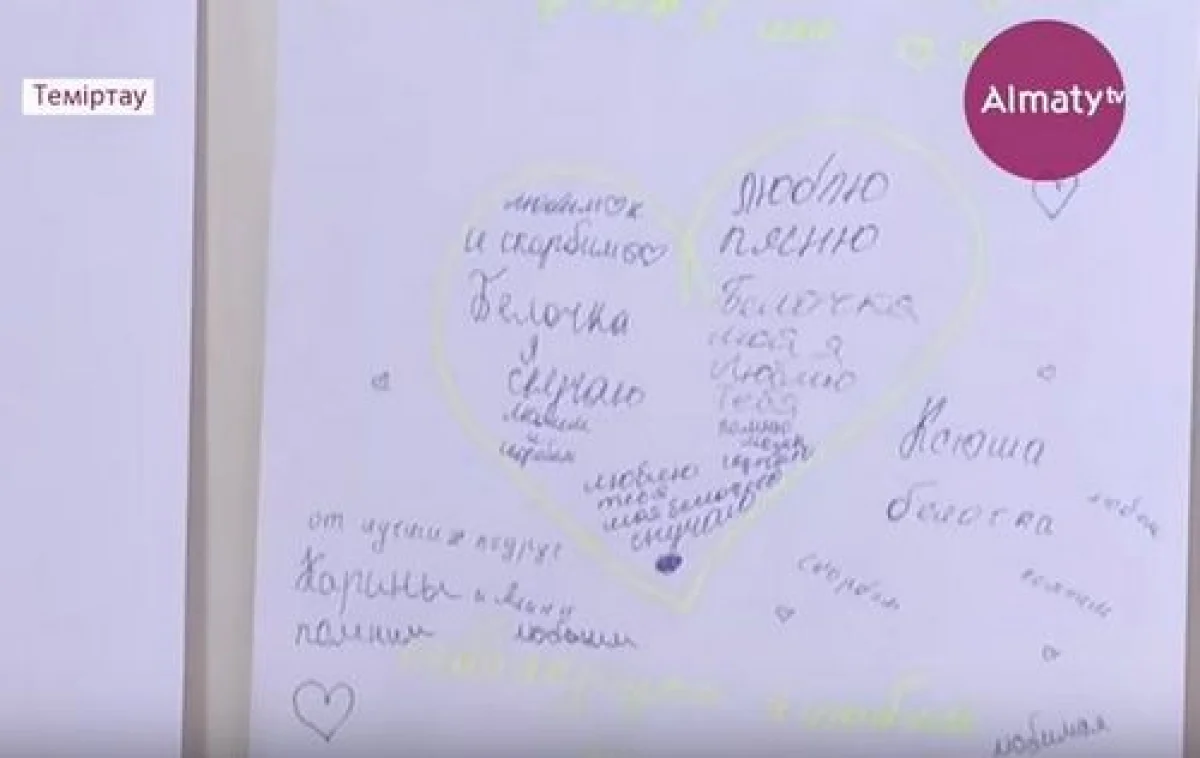 Теміртау
Almaty tv
любим к
и скорбим
Белочка
я
скучаю
любим
и
скорбим
люблю
тебя
моя белочка
скучаю
люблю
Белочка
моя я
люблю
тебя
помню
Ксюша
белочка
любим
от лучших подруг
Карины и
помним любим
скорбим
помним
любимая